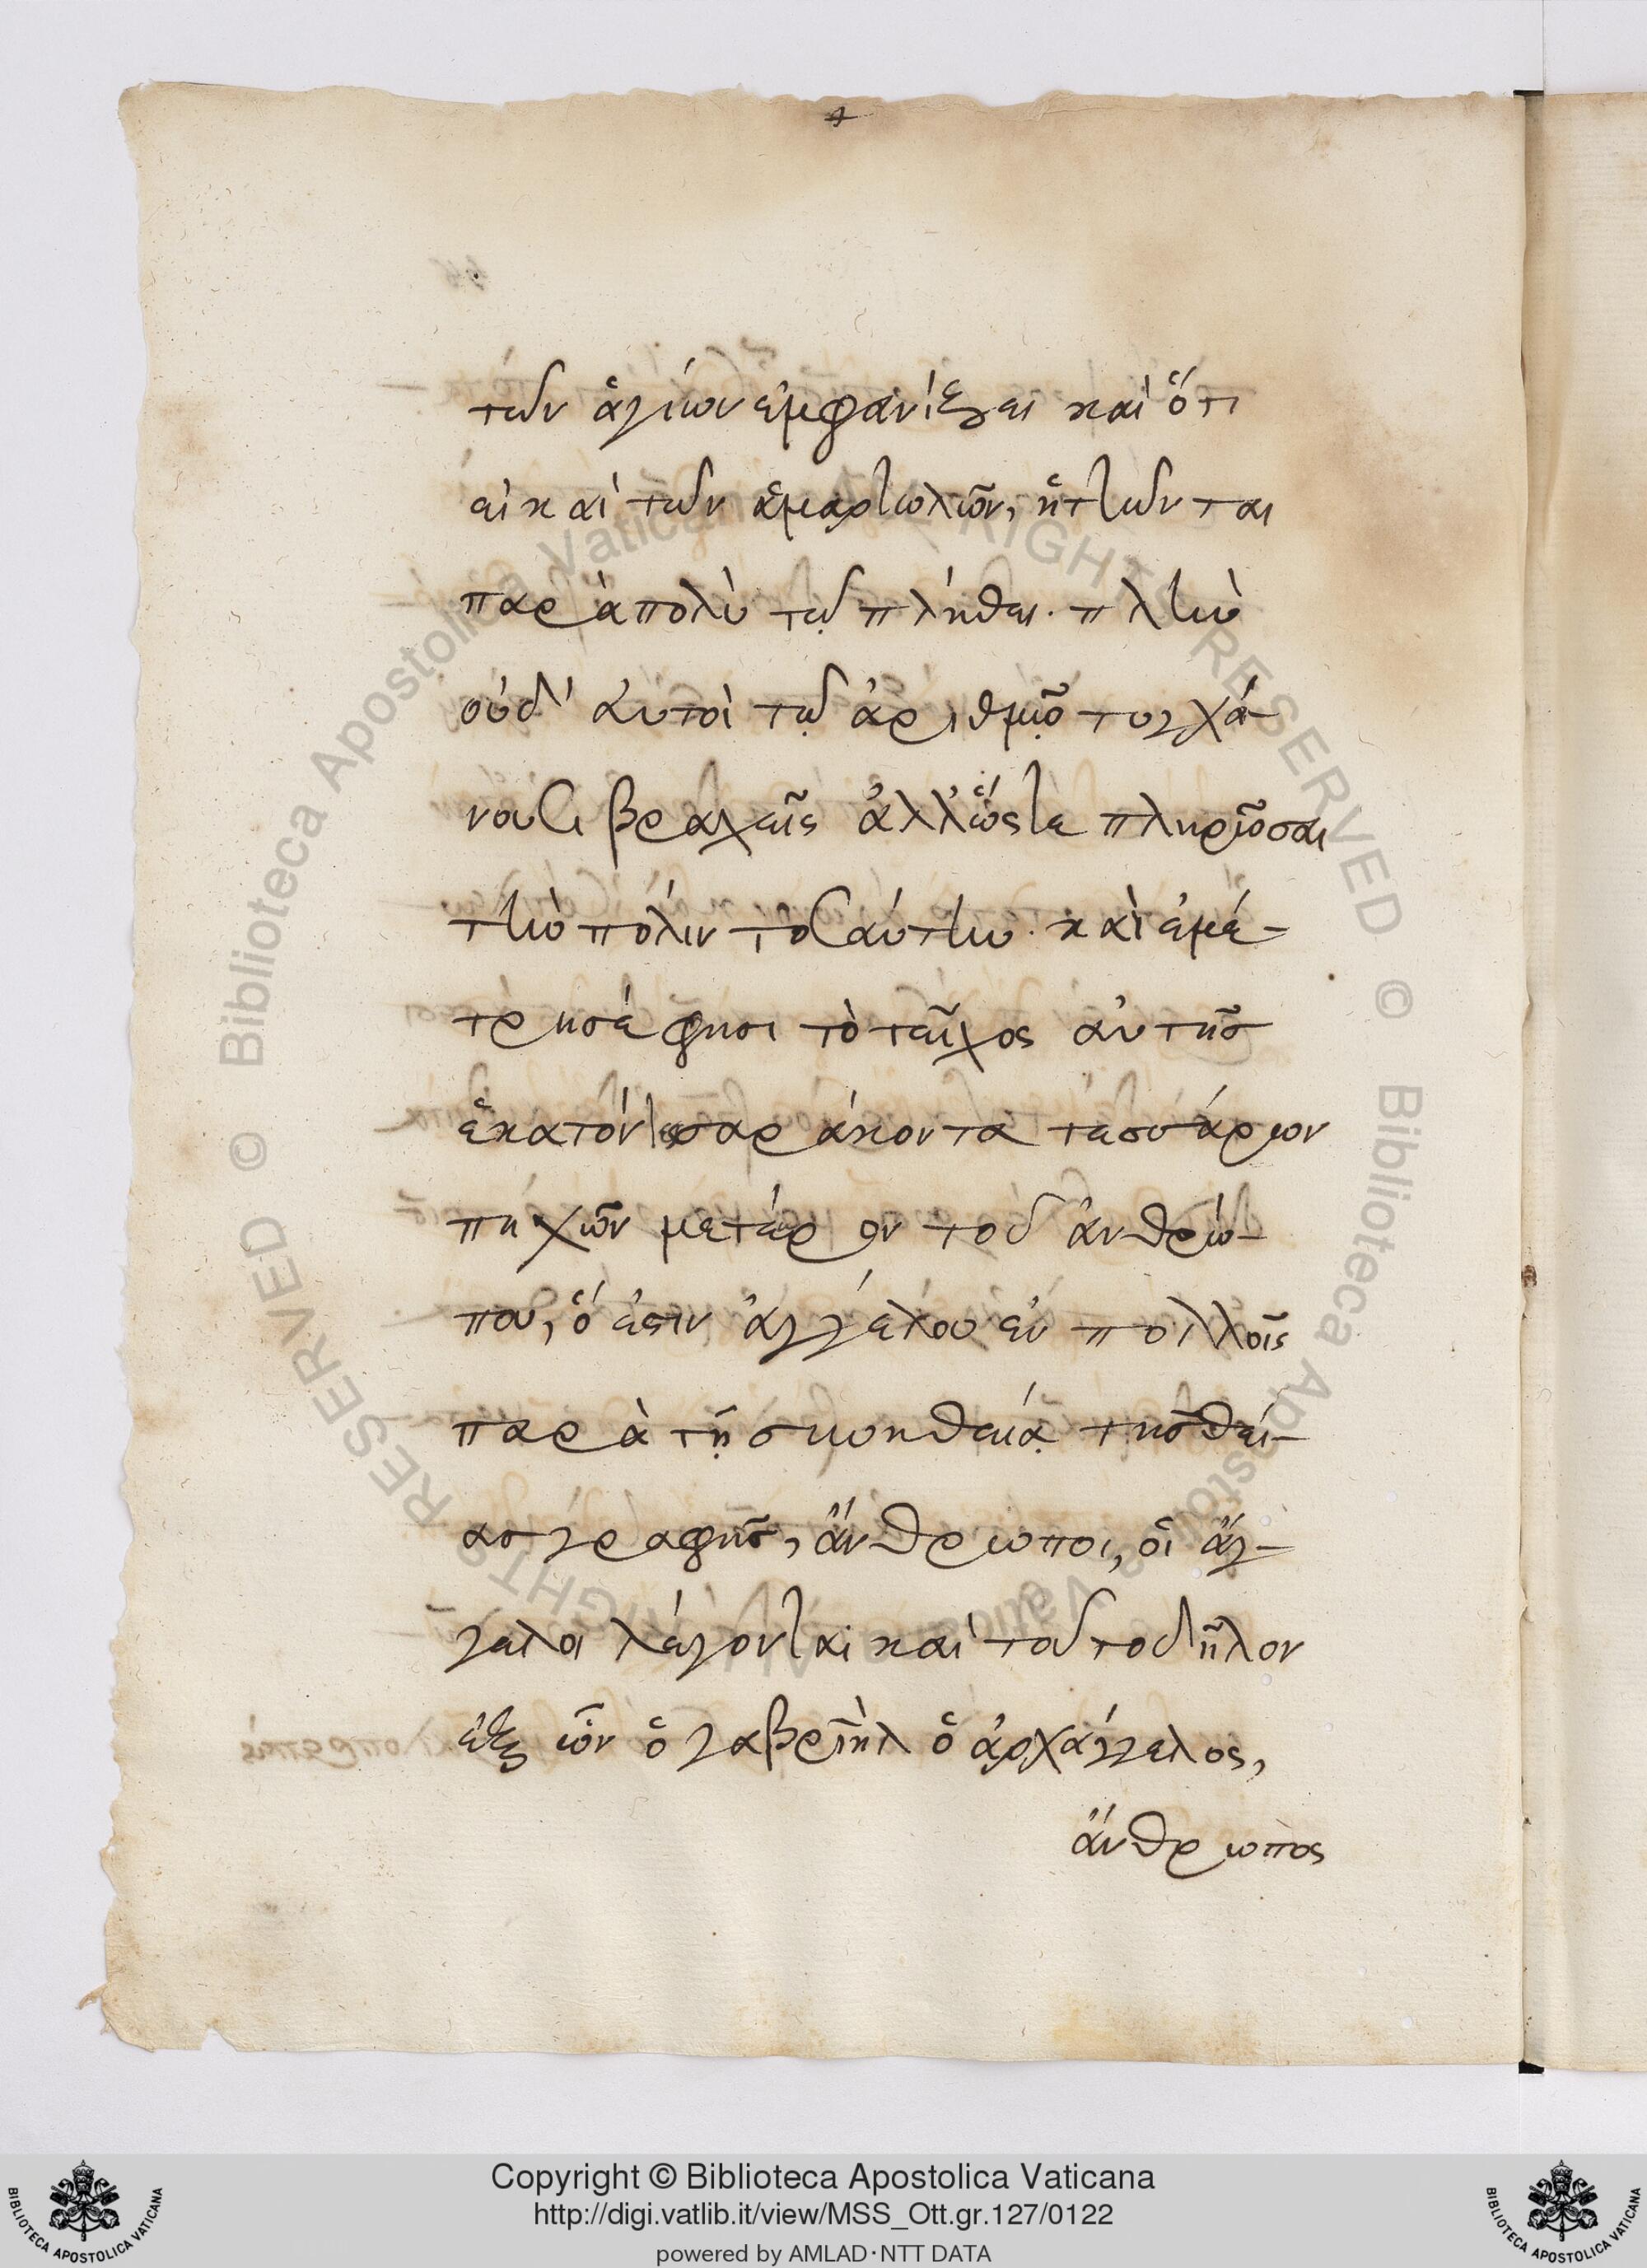 τῶν ἁγίων ἐμφανίζει καὶ ὅτι
εἰ καὶ τῶν ἁμαρτωλῶν, ἡττῶνται
παρὰπολὺ τῷ πλήθει. πλὴν
οὐδ' αὐτοὶ τῷ ἀριθμῷ τυγχά-
νουσι βραχεῖς ἀλλ' ὥστε πληρῶσαι
τὴν πόλιν τοσαύτην. καὶ ἐμέ-
τρησέ φησι τὸ τεῖχος αὐτῆς
ἑκατὸν τεσσαράκοντα τεσσάρων
πηχῶν μέτρον τοῦ ἀνθρώ-
που, ὅ ἐστιν ἀγγέλου ἐν πολλοῖς
παρὰ τῇ συνηθείᾳ τῆς θεί-
ας γραφῆς, ἄνθρωποι, οἱ ἄγ-
γελοι λέγονται καὶ τοῦτο δῆλον
ἐξ ὧν ὁ γαβριὴλ ὁ ἀρχάγγελος,
ἄνθρωπος
Copyright © Biblioteca Apostolica Vaticana
http://digi.vatlib.it/view/MSS_Ott.gr.127/0122
powered by AMLAD·NTT DATA
BIBLIOTECA APOSTOLICA VATICANA
BIBLIOTECA APOSTOLICA VATICANA
© Biblioteca Apostolica Vaticana ALL RIGHTS RESERVED
© Biblioteca Apostolica Vaticana ALL RIGHTS RESERVED